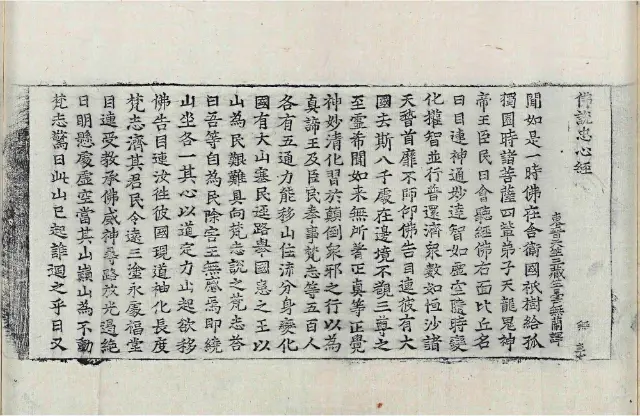 佛說忠心經
東晉天竺三藏竺曇無蘭譯
經
聞如是一時佛在舍衛國祇樹給孤
獨園時諸菩薩四輩弟子天龍鬼神
帝王臣民日會聽經佛右面比丘名
曰目連神通妙達智如虛空隨時變
化權智並行普還濟衆數如恒沙諸
天稽首靡不師仰佛告目連彼有大
國去斯八千處在邊境不覩三尊之
至靈希聞如來無所著正真等正覺
神妙清化習於顛倒衆邪之行以為
真諦王及臣民奉事梵志等五百人
各有五通力能移山住流分身變化
國有大山塞民逕路舉國患之王以
山為民艱難具向梵志說之梵志荅
曰吾等自為民除害王無慼焉即繞
山坐各一其心以道定力山起欲移
佛告目連汝徃彼國現道神化長度
梵志濟其君民令遠三塗永處福堂
目連受教承佛威神尋路放光過絶
日明懸處虛空當其山巓山為不動
梵志驚曰此山已起誰迴之乎日又